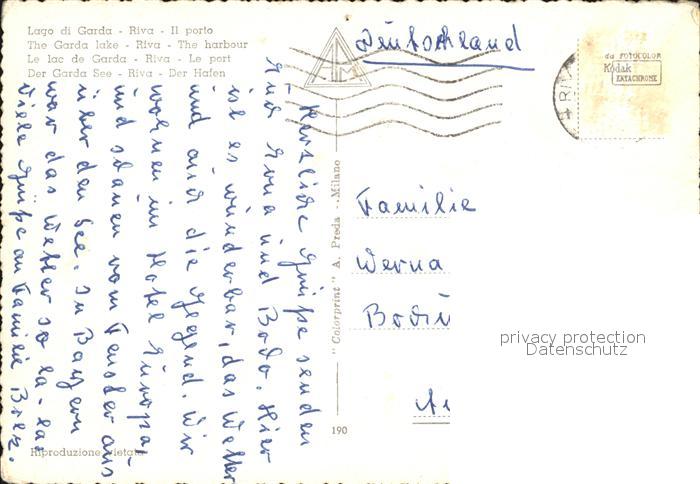 Lago di Garda - Riva - Il porto
The Garda lake - Riva - The harbour
Le lac de Garda - Riva - Le port
Der Garda See - Riva - Der Hafen
Deutschland
da FOTOCOLOR
Kodak
EKTACHROME
RIVA
- Herzliche Grüße senden
Euch Erna und Bodo. Hier
ist es wunderbar, das Wetter
und auch die Gegend. Wir
wohnen im Hotel Europa
und schauen vom Fenster aus
über den See. In Bayern
war das Wetter so la-la.
Viele Grüße an Familie
Familie
Werna
"Colorprint" A. Preda - Milano
190
Riproduzione vietata
privacy protection
Datenschutz